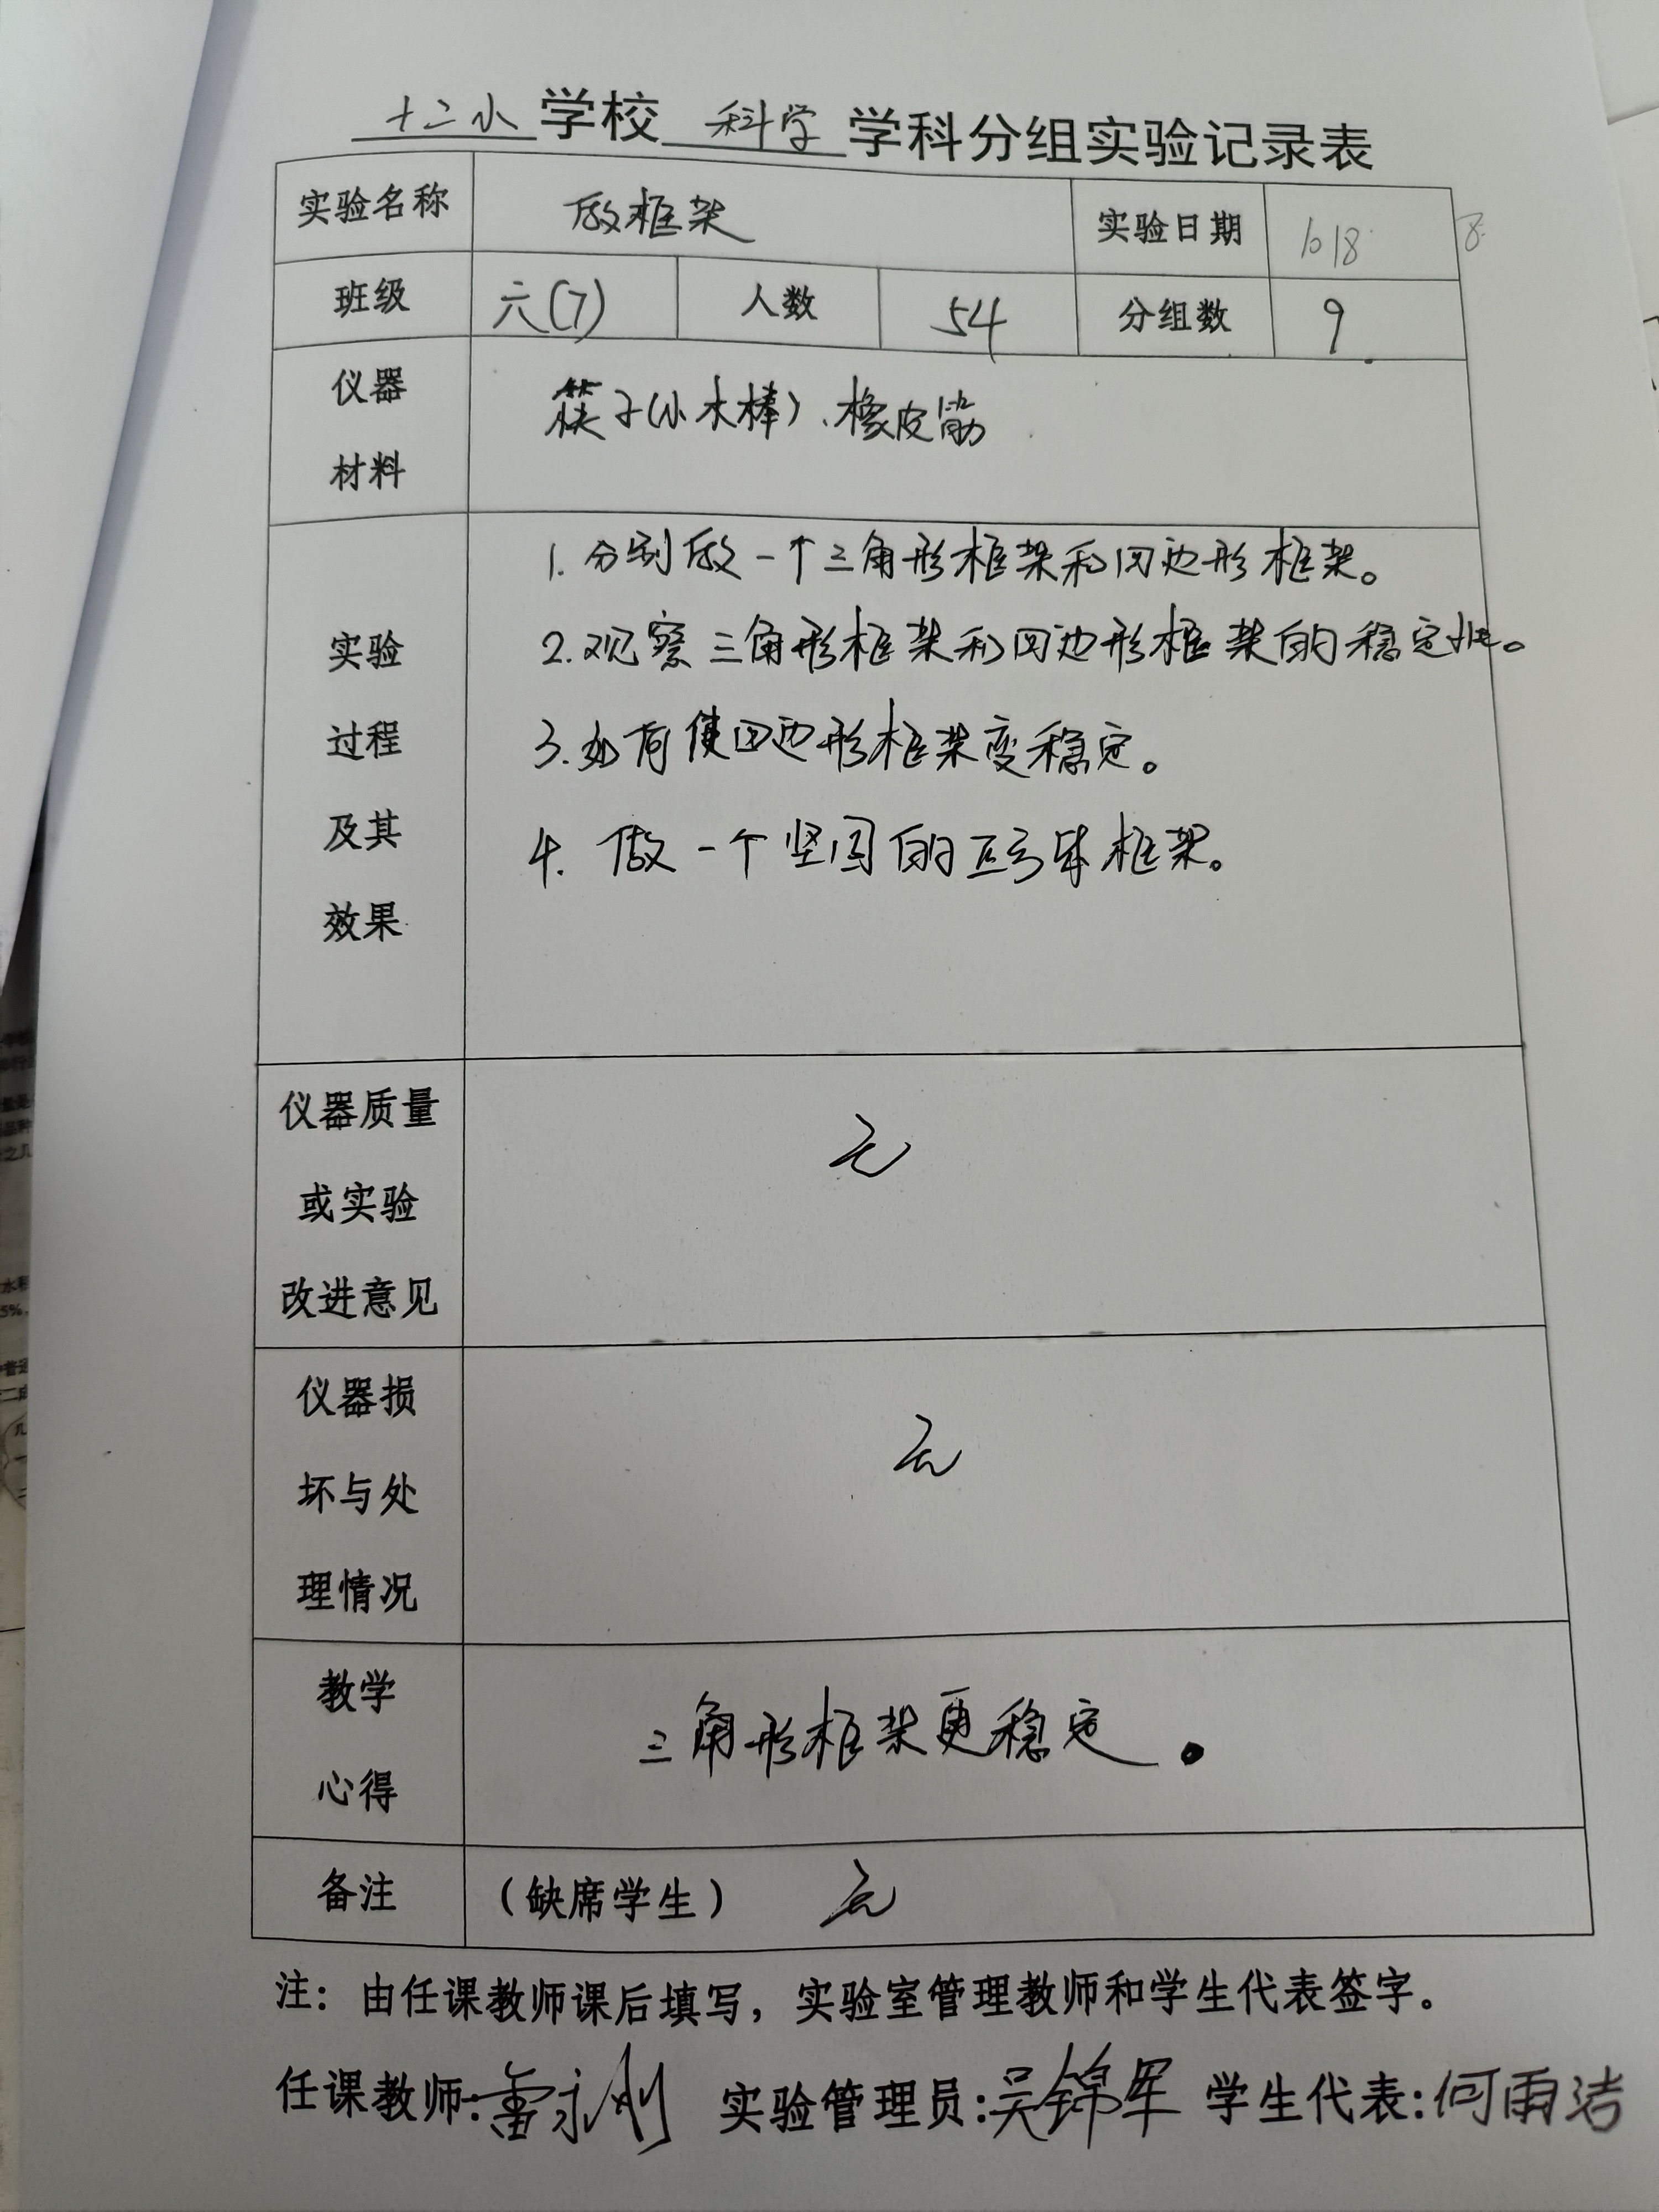 十二小学校科学学科分组实验记录表
实验名称 做框架 实验日期 10 18 8
班级 六(7) 人数 54 分组数 9
仪器
筷子(小木棒)、橡皮筋
材料
1. 分别做一个三角形框架和四边形框架。
实验
2. 观察三角形框架和四边形框架的稳定性。
过程
3. 如何使四边形框架变稳定。
及其
4. 做一个坚固的正方体框架。
效果
仪器质量
无
或实验
改进意见
仪器损
无
坏与处
理情况
教学
三角形框架更稳定。
心得
备注 (缺席学生) 无
注：由任课教师课后填写，实验室管理教师和学生代表签字。
任课教师:雷永刚 实验管理员:吴锦军 学生代表:何雨洁